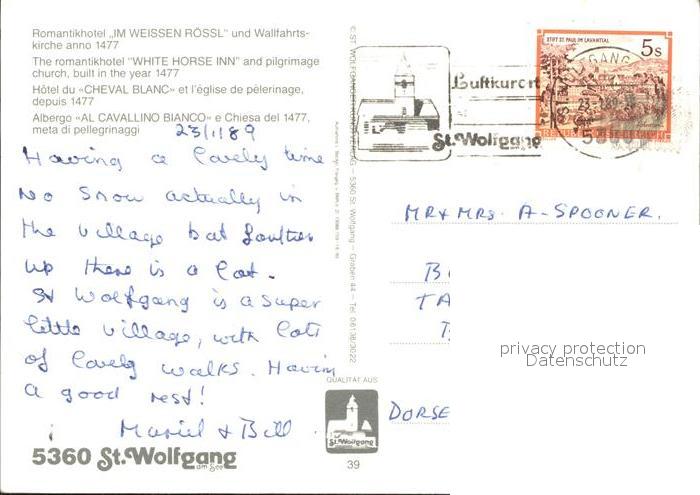 Romantikhotel „IM WEISSEN RÖSSL" und Wallfahrts-
kirche anno 1477
The romantikhotel "WHITE HORSE INN" and pilgrimage
church, built in the year 1477
Hôtel du «CHEVAL BLANC» et l'église de pèlerinage,
depuis 1477
Albergo «AL CAVALLINO BIANCO» e Chiesa del 1477,
meta di pellegrinaggi
23/1/89
Having a lovely time
no snow actually in
the village but further
up there is a lot.
St Wolfgang is a super
little village, with lots
of lovely walks. Having
a good rest!
Muriel + Bill
5360 St. Wolfgang
am See
5360 St. Wolfgang – Graben 44 – Tel. 06138/3022
QUALITÄT AUS
St. Wolfgang
39
Luftkurort
St. Wolfgang
STIFT ST. PAUL IM LAVANTTAL
5s
REPUBLIK
MR & MRS. A - SPOONER.
B
TA
DORSE
privacy protection
Datenschutz